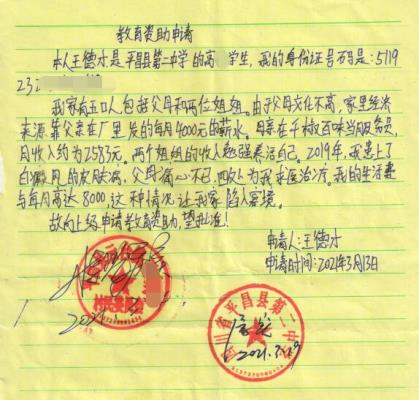 教育资助申请
本人王德才是平昌县第二中学的高 学生，我的身份证号码是：5119
232
我家有五口人包括父母和两位姐姐。由于父母文化不高，家里经济
来源靠父亲在厂里发的每月4000元的薪水。母亲在千椒百味当服务员，
月收入约为2583元。两个姐姐的收入勉强养活自己。2019年，我患上了
白癜风的皮肤病，父母痛心不已，四处为我求医治疗。我的生活费
与每月高达8000，这种情况让我家陷入窘境。
故向上级申请教育资助，望批准！
申请人：王德才
申请时间：2021年3月13日
四川省平昌县第二中学
2021.3.19
2021.3.